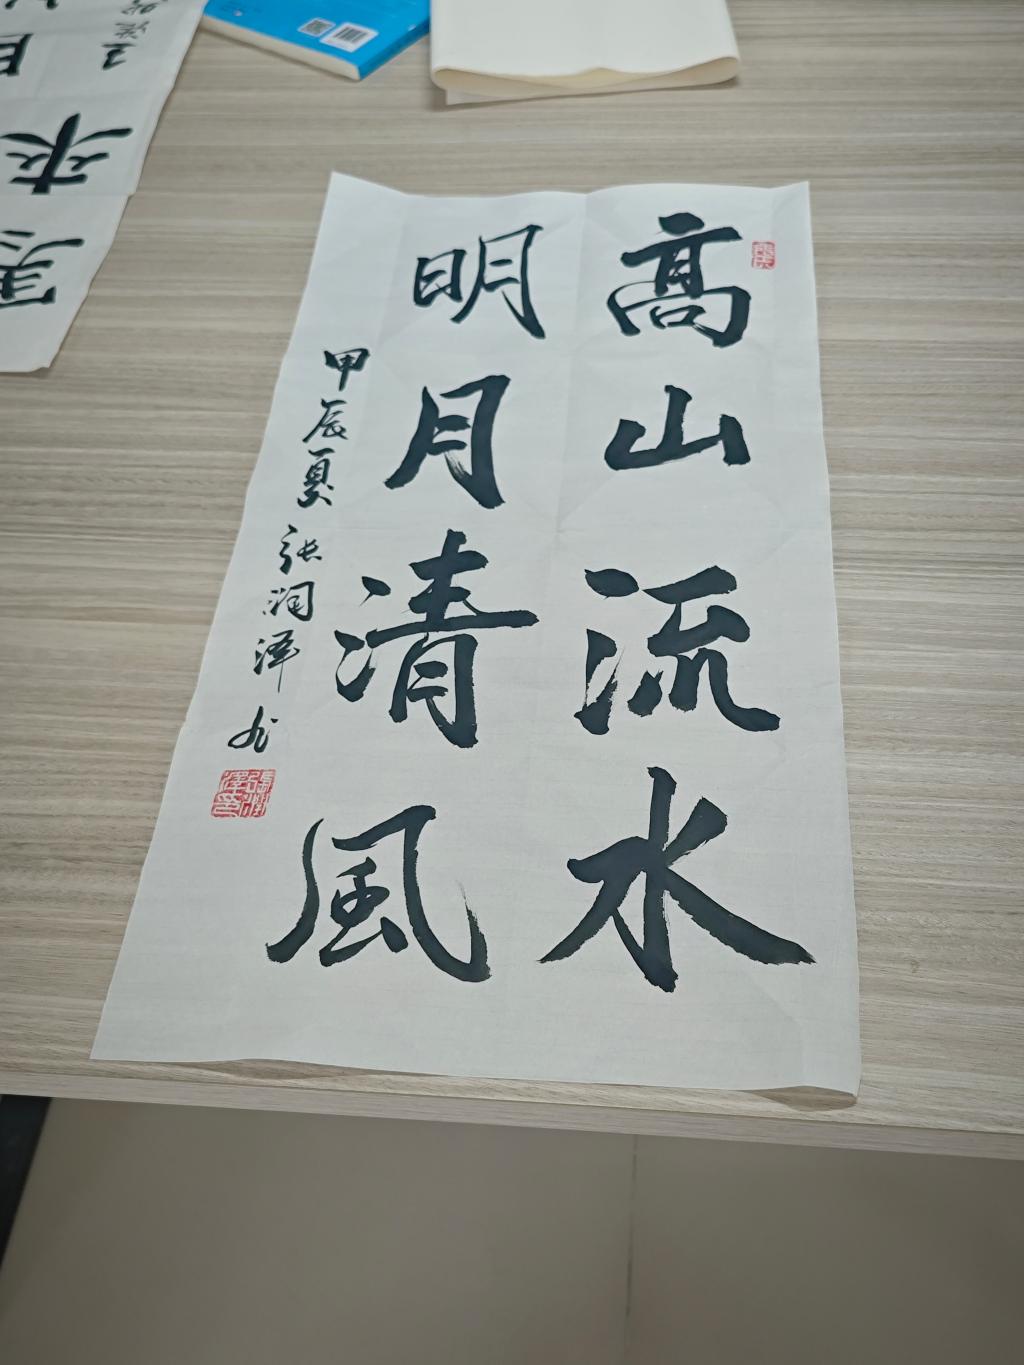 高山流水
明月清風
甲辰夏 张润泽书